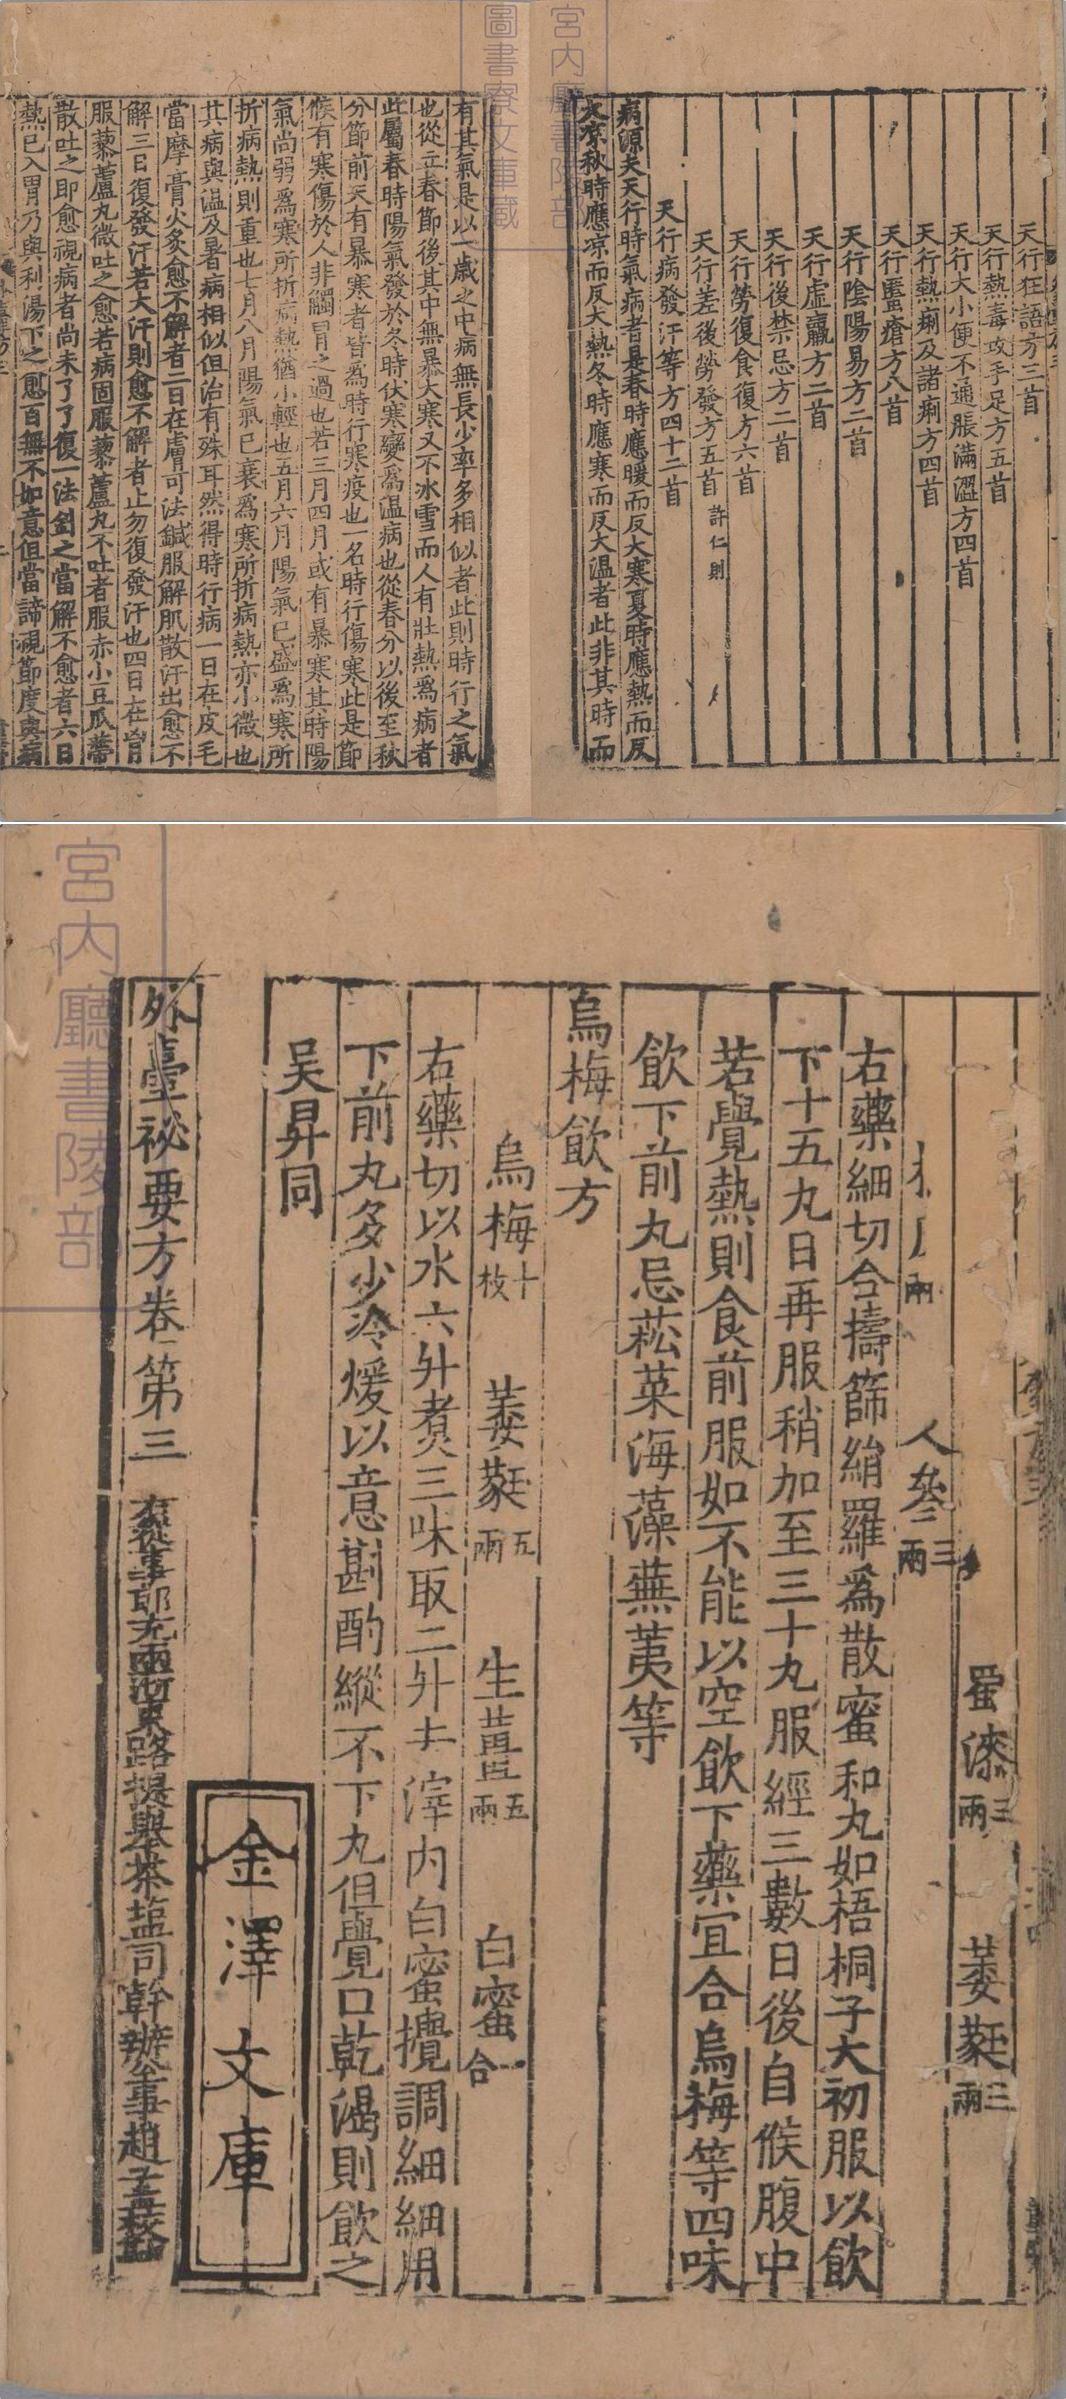 天行狂語方三首
天行熱毒攻手足方五首
天行大小便不通脹滿澀方四首
天行熱痢及諸痢方四首
天行䘌瘡方八首
天行陰陽易方二首
天行虛羸方二首
天行後禁忌方二首
天行勞復食復方六首
天行差後勞發方五首 許仁則
天行病發汗等方四十二首
病源夫天行時氣病者是春時應暖而反大寒夏時應熱而反
大涼秋時應涼而反大熱冬時應寒而反大温者此非其時而
有其氣是以一歲之中病無長少率多相似者此則時行之氣
也從立春節後其中無暴大寒又不冰雪而人有壯熱爲病者
此屬春時陽氣發於冬時伏寒變爲温病也從春分以後至秋
分節前天有暴寒者皆爲時行寒疫也一名時行傷寒此是節
候有寒傷於人非觸冒之過也若三月四月或有暴寒其時陽
氣尚弱爲寒所折病熱猶小輕也五月六月陽氣已盛爲寒所
折病熱則重也七月八月陽氣已衰爲寒所折病熱亦小微也
其病與温及暑病相似但治有殊耳然得時行病一日在皮毛
當摩膏火灸愈不解者二日在膚可法鍼服解肌散汗出愈不
解三日復發汗若大汗則愈不解者止勿復發汗也四日在胷
服藜蘆丸微吐之愈若病固服藜蘆丸不吐者服赤小豆瓜蔕
散吐之即愈視病者尚未了了復一法刺之當解不愈者六日
熱已入胃乃與利湯下之愈百無不如意但當諦視節度與病
宮内廳書陵部
圖書寮文庫藏
蜀漆三兩 萎蕤三兩
兩 人參三兩
右藥細切合擣篩絹羅爲散蜜和丸如梧桐子大初服以飲
下十五丸日再服稍加至三十丸服經三數日後自候腹中
若覺熱則食前服如不能以空飲下藥宜合烏梅等四味
飲下前丸忌菘菜海藻蕪荑等
烏梅飲方
烏梅十枚 萎蕤五兩 生薑五兩 白蜜一合
右藥切以水六升煮三味取二升去滓内白蜜攪調細細用
下前丸多少冷煖以意斟酌縱不下丸但覺口乾渴則飲之
吴昇同
外臺祕要方卷第三 右從事郎充兩浙東路提舉茶鹽司幹辦公事趙子孟校勘
金澤文庫
宮内廳書陵部